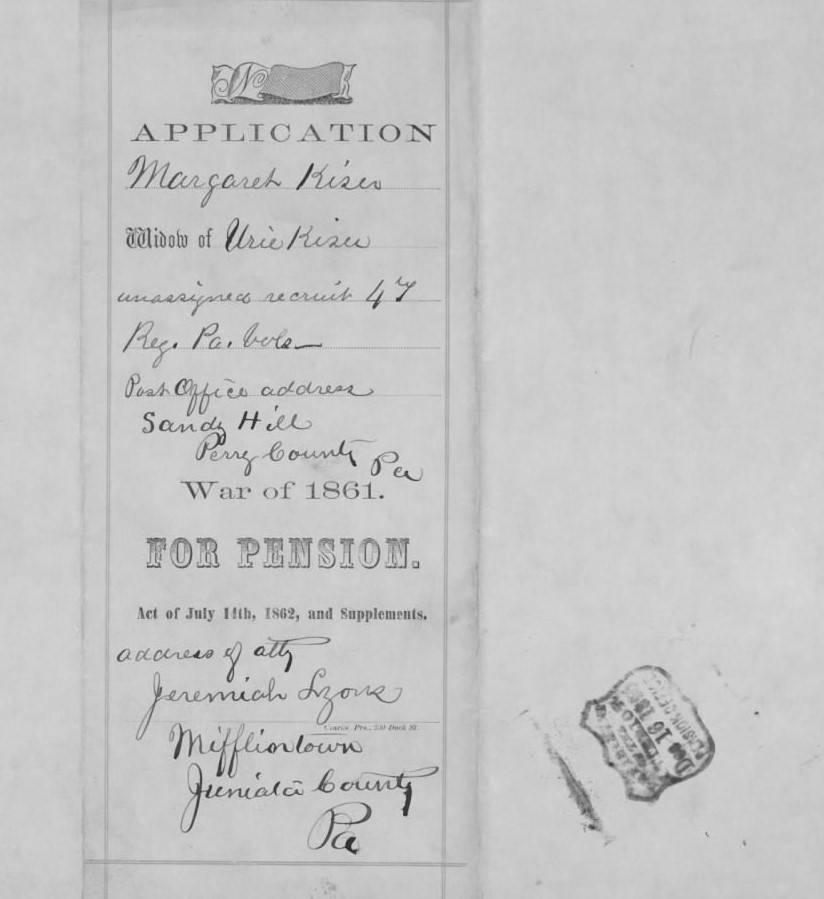 No
APPLICATION
Margaret Kiser
Widow of Urie Kiser
unassigned recruit 47
Reg. Pa. Vols
Post Office address
Sandy Hill
Perry County
Pa
War of 1861.
FOR PENSION.
Act of July 14th, 1862, and Supplements.
address of atty
Jeremiah Lyons
Mifflintown
Juniata County
Pa
Dec 16
PENSION OFFICE